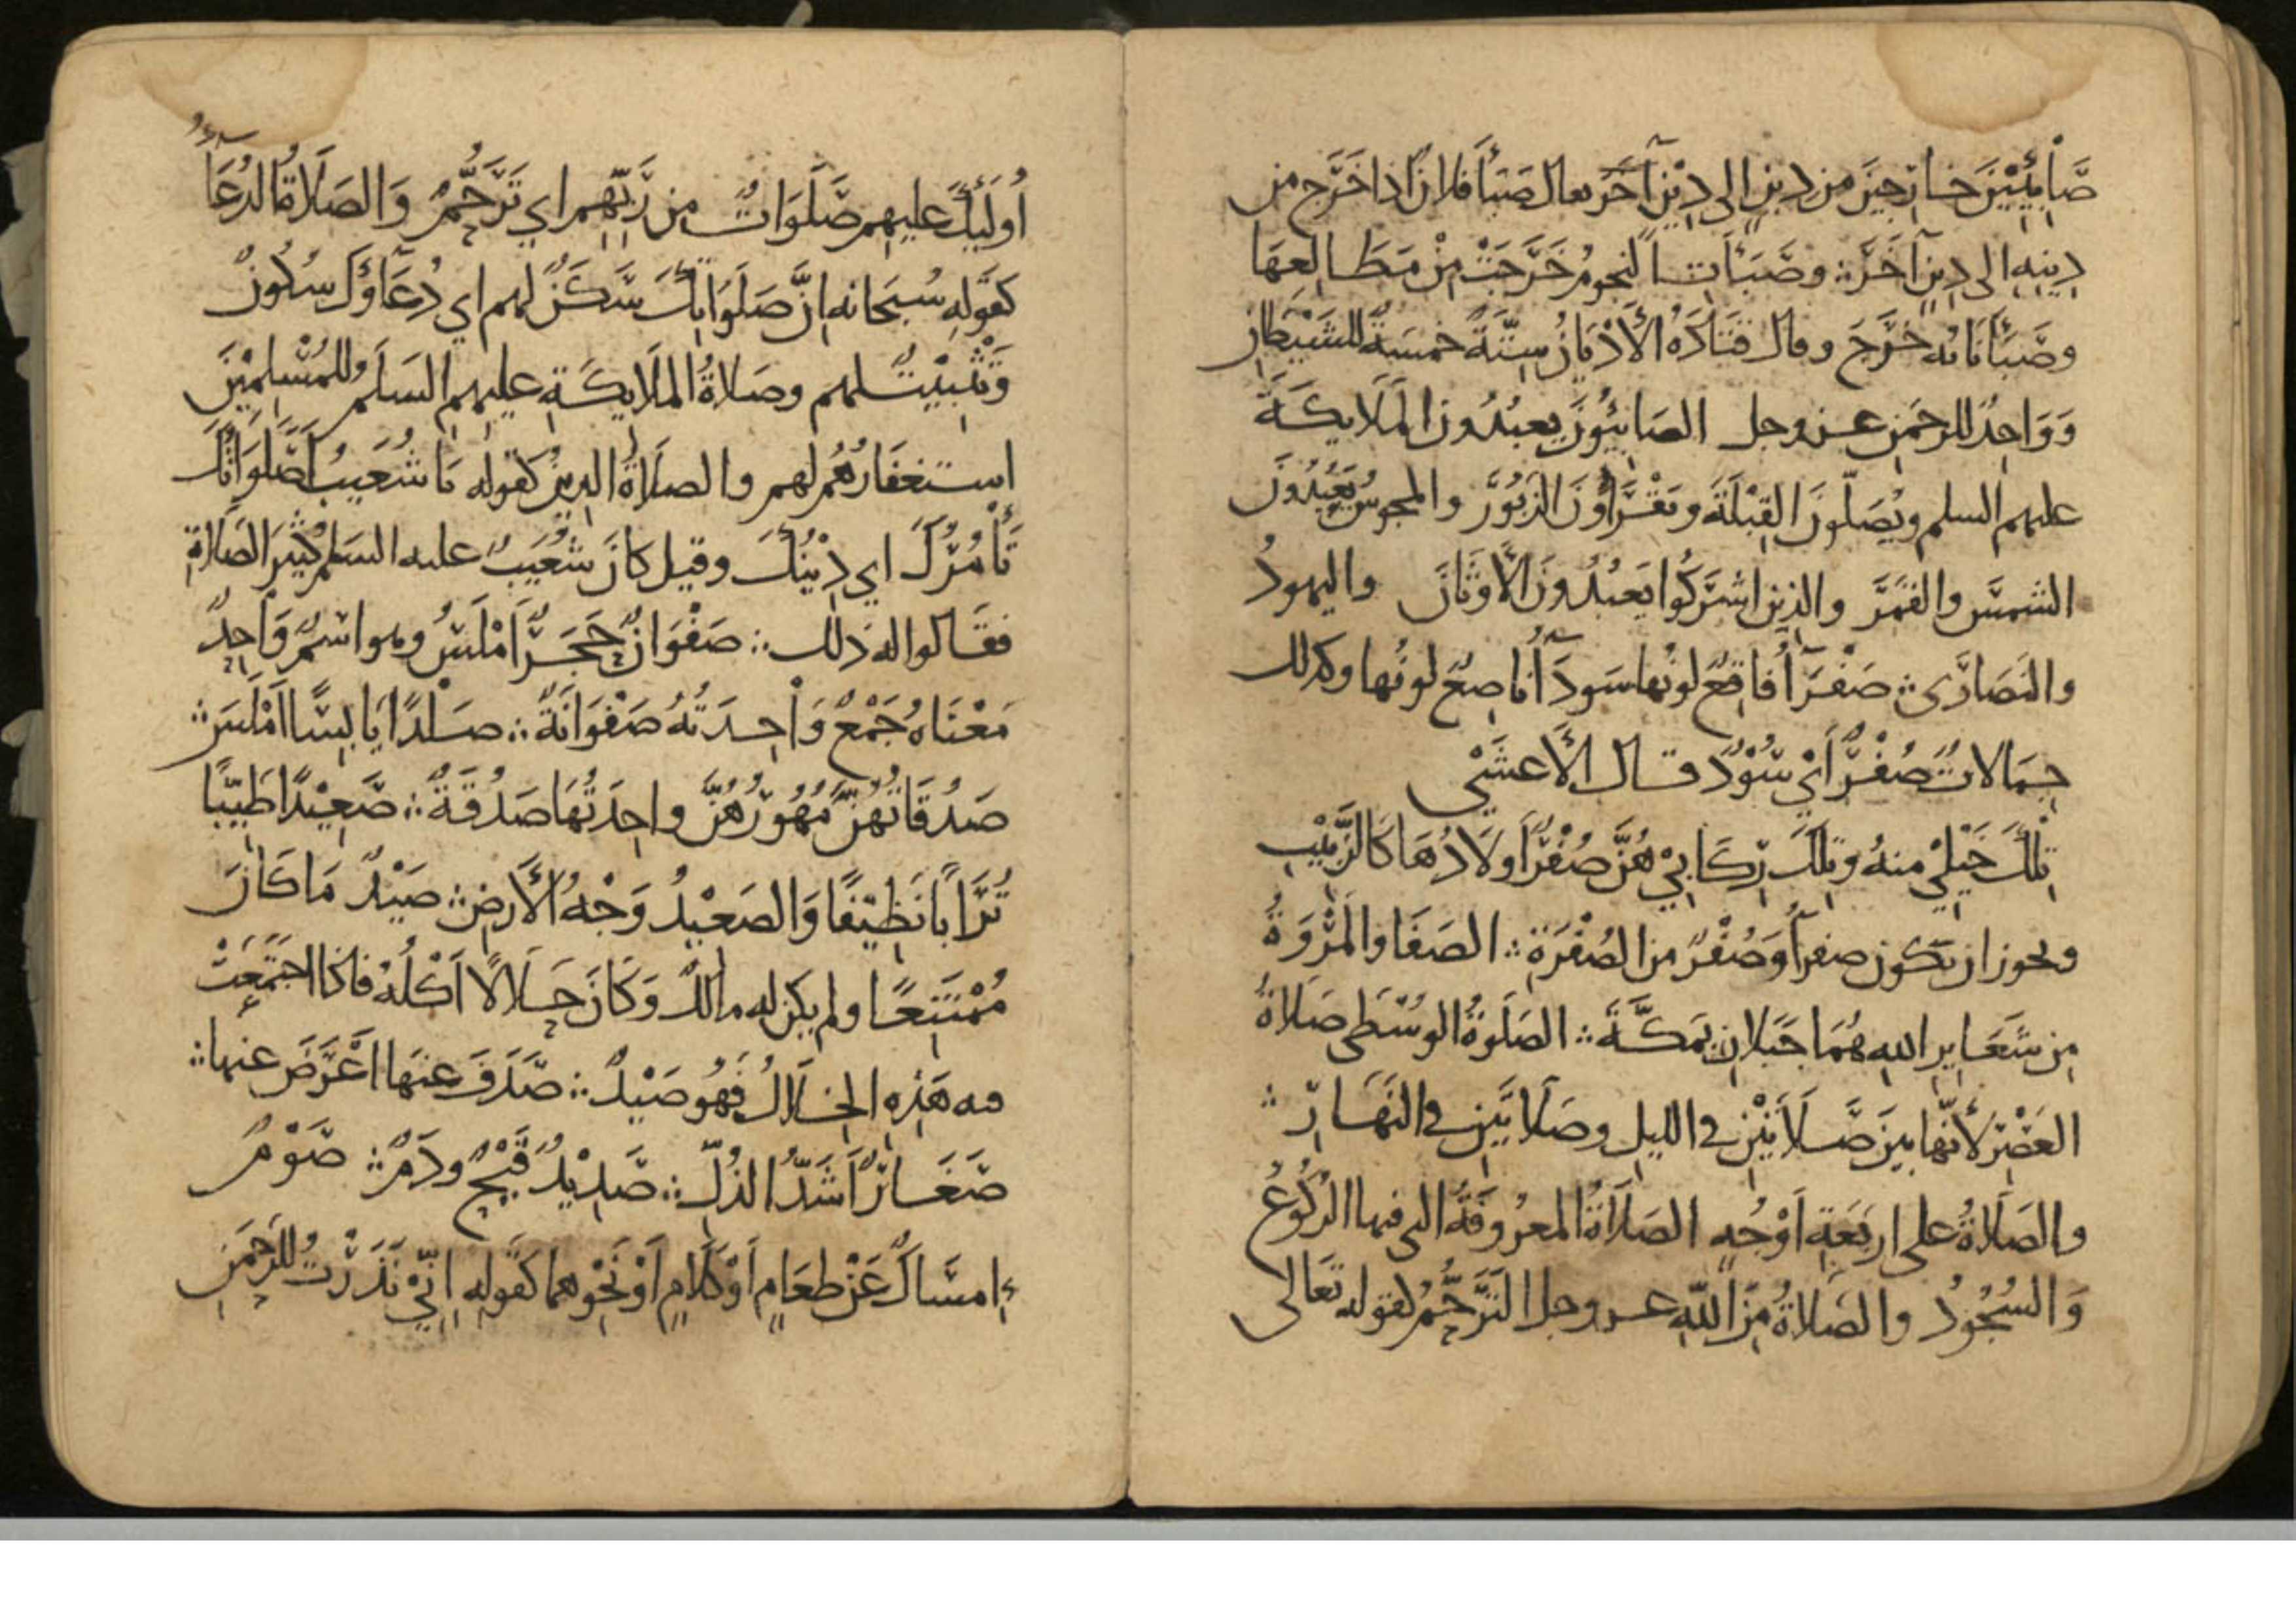 صَابِئِيْنَ خَارِجِيْنَ من دينٍ الى دِيْنٍ آخَرَ يقال صَبَأَ فلانٌ اذا خَرَجَ من
دِينِهِ الى دِينٍ آخَرَ ؞ وصَبَأَتِ النجومُ خَرَجَتْ مِنْ مَطَالِعِهَا
وصَبَأَ نَابُه خَرَجَ وقال قَتَادَهُ الأَدْيَانُ سِتَّةٌ خمسَةٌ للشَيْطَانِ
وَوَاحِدٌ للرحمَنِ عز وجل الصَابِئُوْنَ يعبُدُونَ المَلَايِكَةَ
عليهم السلم ويُصَلّونَ القِبْلَةَ ويَقْرَأُوْنَ الزَبُوْرَ والمجوسُ يَعْبُدُوْنَ
الشمسَ والقَمَرَ والذين اشرَكُوا يَعبُدُونَ الأَوثَانَ واليهودُ
والنَصَارَى ؞ صَفْرَآءُ فَاقِعٌ لونُها سَودَآءُ نَاصِعٌ لونُها وكذلك
جِمَالاتٌ صُفْرٌ أَيْ سُوْدٌ قال الأَعشَىْ
تِلْكَ خَيْلِيْ مِنهُ وتِلْكَ رِكَابِيْ هُنَّ صُفْرٌ أَولَادُهَا كَالزَبِيْبِ
ويجوز ان يَكون صفرآءُ وَصُفْرٌ من الصُفْرَةِ ؞ الصَفَا والمَرْوَةُ
مِن شَعَايِرِ اللهِ هُمَا جَبَلانِ بِمَكَّةَ ؞ الصَلَوةُ الوسْطَى صَلاةُ
العَصْرِ لأَنَّها بينَ صَلَاتَيْنِ في الليلِ وصَلَاتَيْنِ في النَهَارِ ؞
والصَلاةُ على اربَعَةِ اَوْجُهٍ الصَلَاةُ المعرُوفَةُ التى فيها الرُكُوْعُ
وَالسُجُوْدُ والصَلاةُ مِنَ اللّهِ عز وجل التَرَحُّمُ لقولِهِ تَعَالى
أُولَئِكَ عليهِم صَلَوَاتٌ مِن رَبِّهِم اي تَرَحُّمٌ وَالصَلَاةُ الدُعَآءُ
كقَولِهِ سُبحَانه اِنَّ صَلَوَاتِكَ سَكَنٌ لهم اي دُعَآؤُكَ سُكُونٌ
وَتَثْبِيْتٌ لهم وصَلاةُ المَلَايِكَةِ عليهِم السَلَمُ وللمُسْلِمِيْنَ
اِستغفَارُهُم لهم والصَلَاةُ الدِينُ كقَولِه يَا شُعَيبُ أَصَلَوَاتُكَ
تَأْمُرُكَ اي دِيْنُكَ وقيل كَانَ شُعَيبٌ عليه السَلم كَثِيْرَ الصَلَاةِ
فقَالوا له ذلك ؞ صَفْوَانٌ حَجَرٌ اَمْلَسُ وهو اسْمٌ وَاحِدٌ
مَعْنَاهُ جَمْعٌ وَاْحِدَتُهُ صَفْوَانَةٌ ؞ صَلْدًا يَابِسًا اَمْلَسَ ؞
صَدُقَاتُهُنَّ مُهُوْرُهُنَّ واحِدَتُهَا صَدُقَةٌ ؞ صَعِيْدًا طَيِّبًا
تُرَابًا نَظِيْفًا وَالصَعْيِدُ وَجْهُ الأَرضِ ؞ صَيْدٌ مَا كَانَ
مُمْتَنِعًا ولم يكن له مالكٌ وَكَانَ حَلَالًا اَكْلُهُ فَاذا اجتَمَعَتْ
فيه هَذِهِ الخِلَالُ فَهُو صَيْدٌ ؞ صَدَفَ عنهَا اَعْرَضَ عنها ؞
صَغَارٌ اَشَدُّ الذُلِّ ؞ صَدِيْدٌ قَيْحٌ ودَمٌ ؞ صَوْمٌ
إِمسَاكٌ عَنْ طعَامٍ أَوْ كَلَامٍ اَوْ نَحْوِهما كَقولِهِ اِنِّيْ نَذَرْتُ للرَحْمَنِ